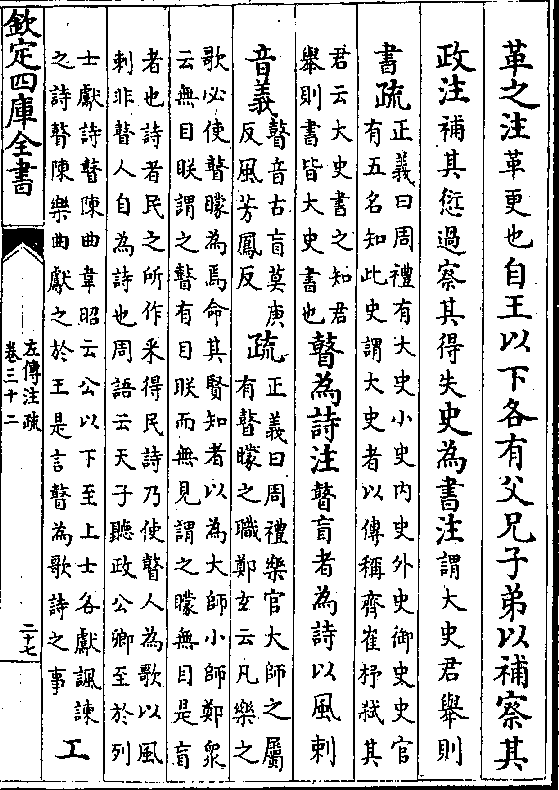 革之注革更也自王以下各有父兄子弟以補察其
政注補其愆過察其得失史為書注謂大史君舉則
書疏正義曰周禮有大史小史內史外史御史史官
有五名知此史謂大史者以傳稱齊崔杼弑其
君云大史書之知君
舉則書皆大史書也瞽為詩注瞽盲者為詩以風刺
音義瞽音古盲莫庚
反風芳鳳反疏正義曰周禮樂官大師之屬
有瞽矇之職鄭玄云凡樂之
歌必使瞽矇為焉命其賢知者以為大師小師鄭衆
云無目眹謂之瞽有目眹而無見謂之矇無目是盲
者也詩者民之所作采得民詩乃使瞽人為歌以風
刺非瞽人自為詩也周語云天子聽政公卿至於列
士獻詩瞽陳曲韋昭云公以下至上士各獻諷諫
之詩瞽陳樂曲獻之於王是言瞽為歌詩之事工
欽定四庫全書
左傳注疏
卷三十二
二十七